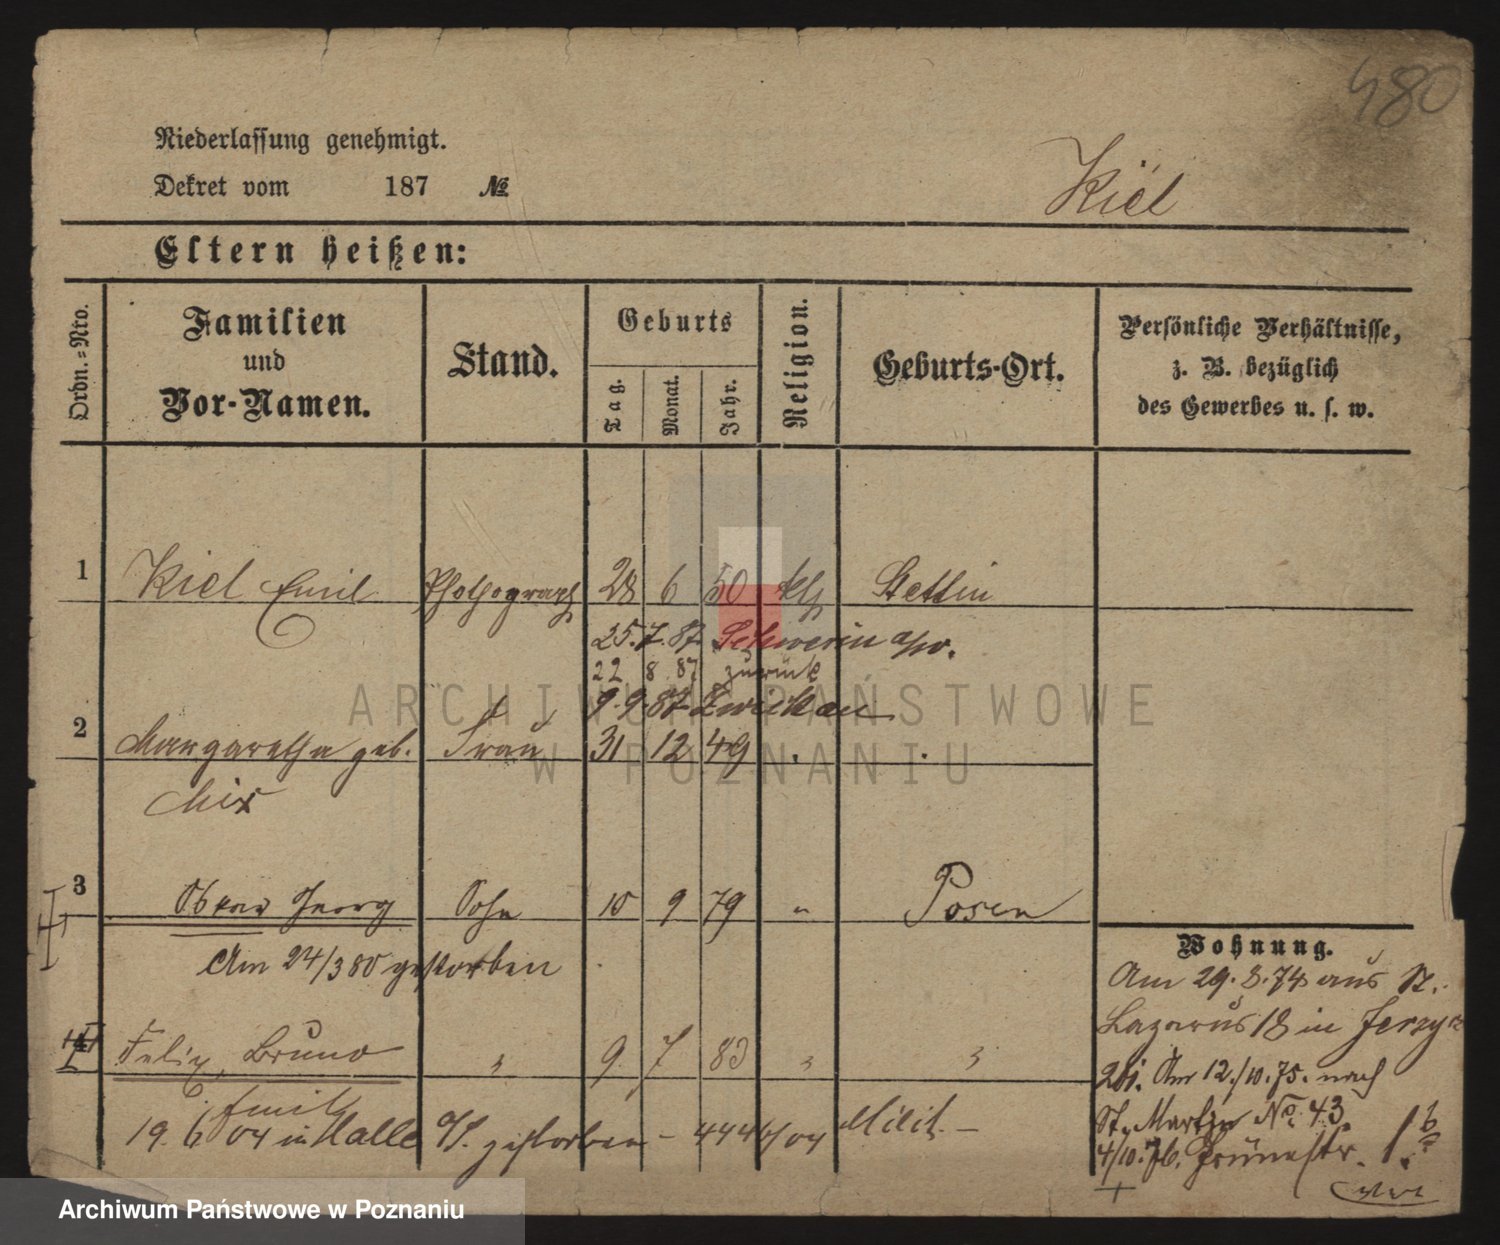 480
Niederlassung genehmigt.
Dekret vom 187 №
Kiel
Eltern heißen:
Ordn.=Nro.
Familien
und
Vor-Namen.
Stand.
Geburts
Tag.
Monat.
Jahr.
Religion.
Geburts-Ort.
Persönliche Verhältnisse,
z. B. bezüglich
des Gewerbes u. s. w.
1 Kiel Emil Photograph 28 6 50 kth Stettin
25. 7. 87 Schwerin a/w.
22 8 87 zurück
9. 9. 87 Zwickau
2 Margaretha geb. Frau 31 12 49
Mix
3 Oskar Georg Sohn 10 9 79 " Posen
Am 24/3 80 gestorben
Felix, Bruno " 9 7 83 " "
Emil
19. 6 04 in Halle a/S. gestorben – 444/04 Milit. –
Wohnung.
Am 29. 3. 74 aus St.
Lazarus 18 in Jerzyce
Am 12./10. 75. nach
St. Martin No. 43
4/10. 76. Grünestr.
ARCHIWUM PAŃSTWOWE
W POZNANIU
Archiwum Państwowe w Poznaniu